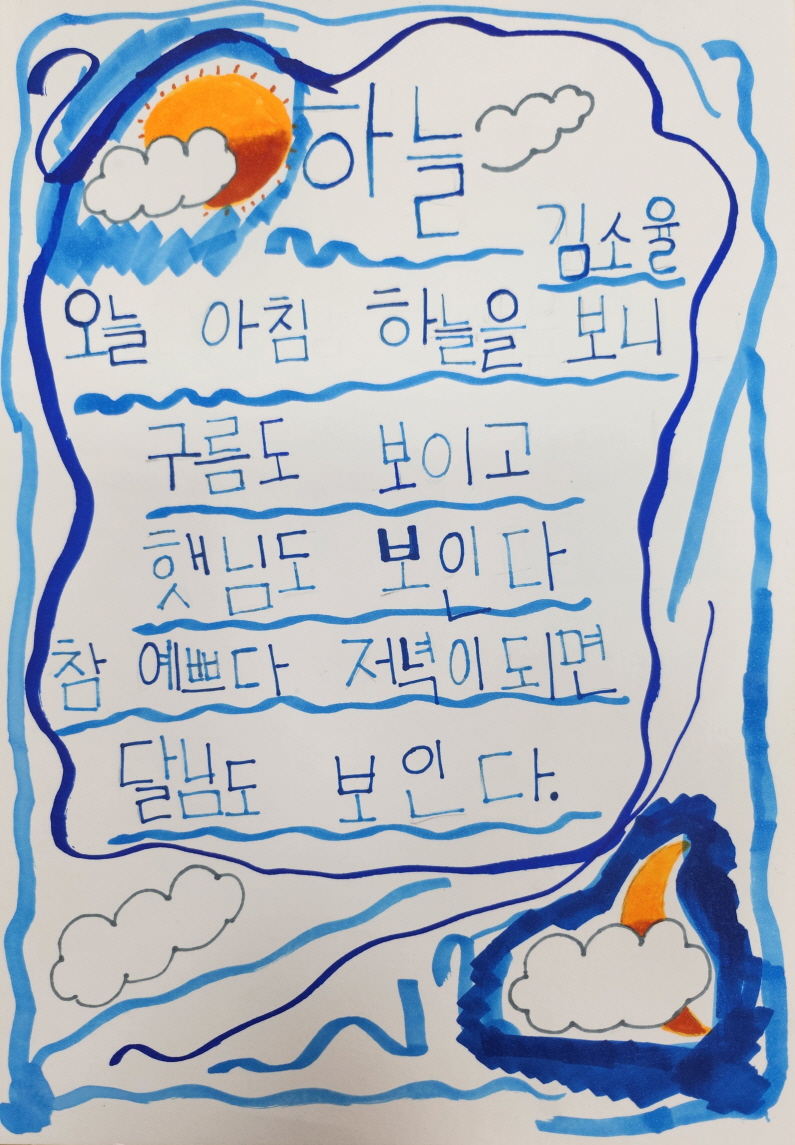 하늘
김소율
오늘 아침 하늘을 보니
구름도 보이고
햇님도 보인다
참 예쁘다 저녁이되면
달님도 보인다.